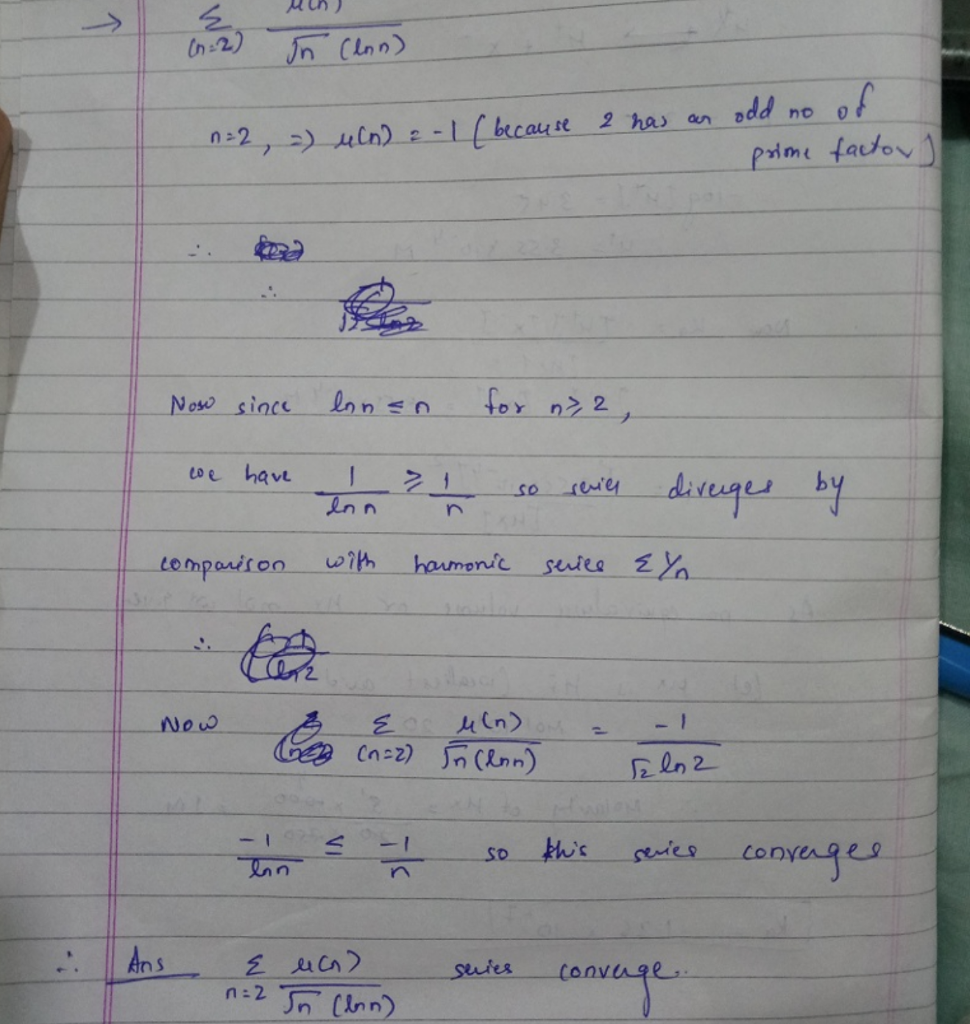 → Σ (n=2) μ(n) / √n (ln n)
n=2, => μ(n) = -1 (because 2 has an odd no of
prime factor)
∴
∴
Now since ln n ≤ n for n ≥ 2,
we have 1/ln n ≥ 1/n so series diverges by
comparison with harmonic series Σ 1/n
∴
Now Σ (n=2) μ(n) / √n (ln n) = -1 / √2 ln 2
-1/ln n ≤ -1/n so this series converges
∴ Ans Σ n=2 μ(n) / √n (ln n) series converge.